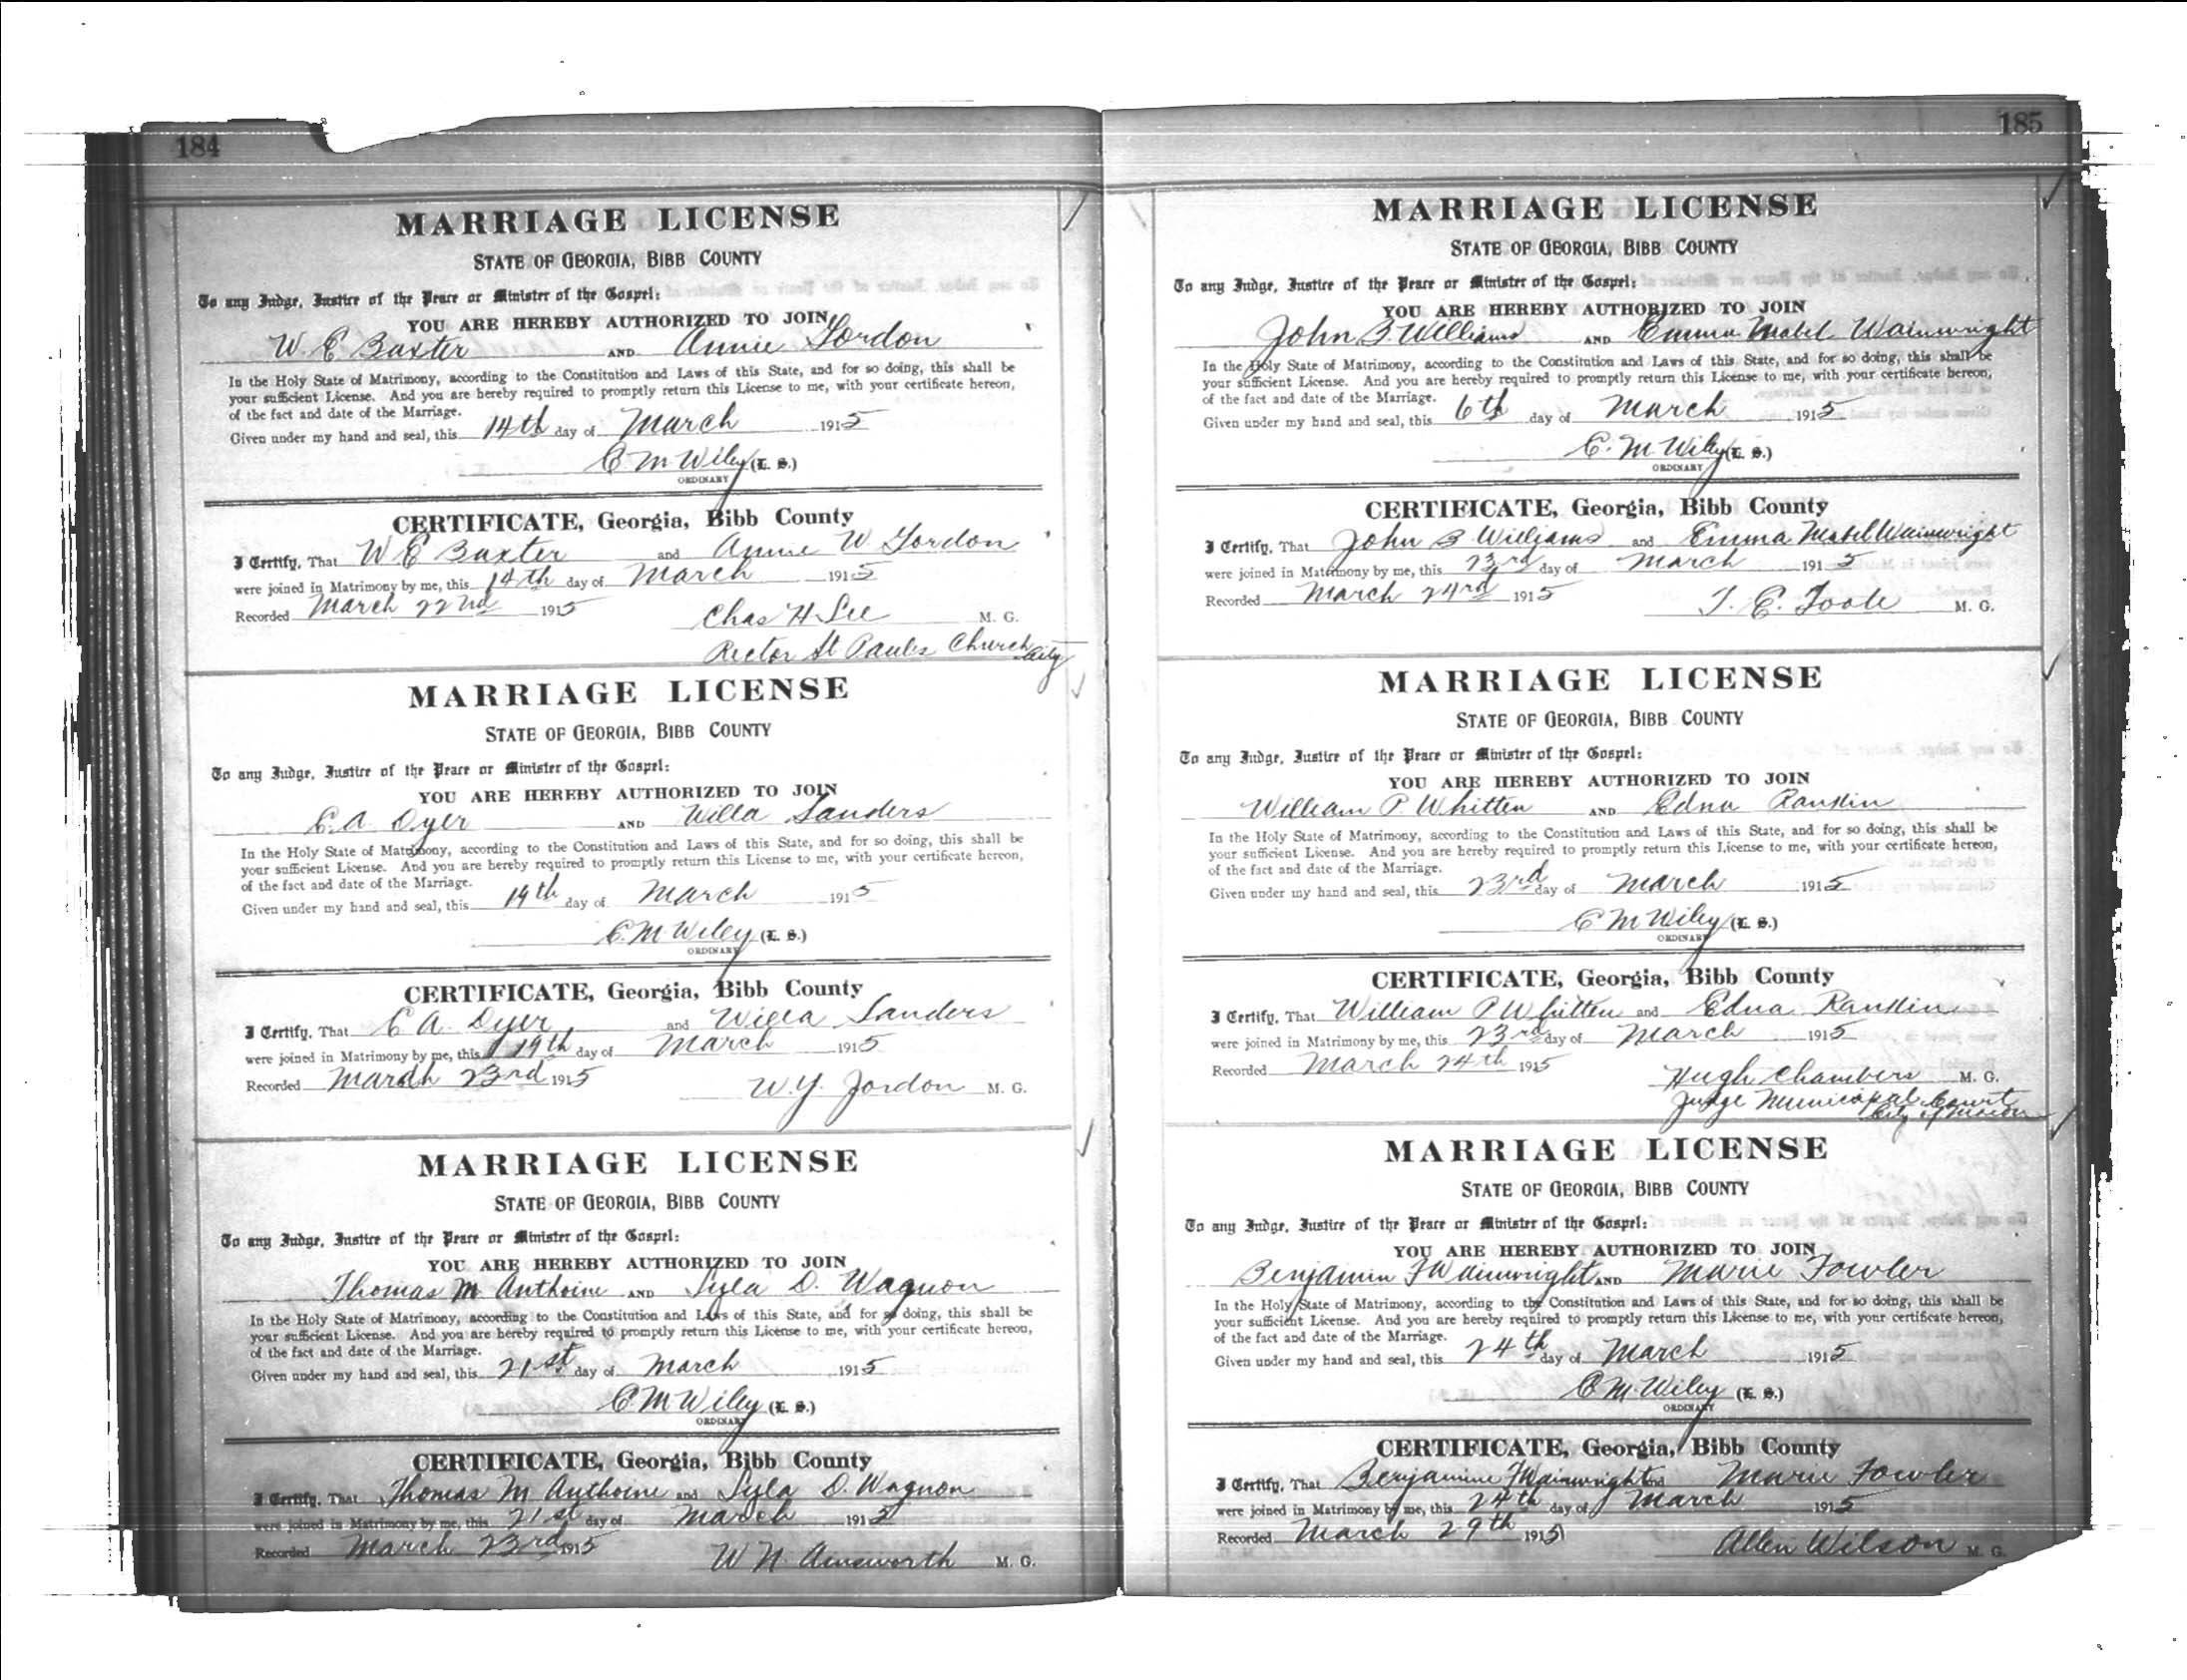 184
MARRIAGE LICENSE
STATE OF GEORGIA, BIBB COUNTY
To any Judge, Justice of the Peace or Minister of the Gospel:
YOU ARE HEREBY AUTHORIZED TO JOIN
W. E Baxter AND Annie Gordon
In the Holy State of Matrimony, according to the Constitution and Laws of this State, and for so doing, this shall be
your sufficient License. And you are hereby required to promptly return this License to me, with your certificate hereon,
of the fact and date of the Marriage.
Given under my hand and seal, this 14th day of March 1915
C M Wiley (L. S.)
ORDINARY
CERTIFICATE, Georgia, Bibb County
I Certify, That W E Baxter and Annie W Gordon
were joined in Matrimony by me, this 14th day of March 1915
Recorded March 22nd 1915
Chas H Lee M. G.
Rector St Paul's Church City
MARRIAGE LICENSE
STATE OF GEORGIA, BIBB COUNTY
To any Judge, Justice of the Peace or Minister of the Gospel:
YOU ARE HEREBY AUTHORIZED TO JOIN
E. A Dyer AND Willa Sanders
In the Holy State of Matrimony, according to the Constitution and Laws of this State, and for so doing, this shall be
your sufficient License. And you are hereby required to promptly return this License to me, with your certificate hereon,
of the fact and date of the Marriage.
Given under my hand and seal, this 19th day of March 1915
C. M Wiley (L. S.)
ORDINARY
CERTIFICATE, Georgia, Bibb County
I Certify, That E A Dyer and Willa Sanders
were joined in Matrimony by me, this 19th day of March 1915
Recorded March 23rd 1915
W. Y. Jordon M. G.
MARRIAGE LICENSE
STATE OF GEORGIA, BIBB COUNTY
To any Judge, Justice of the Peace or Minister of the Gospel:
YOU ARE HEREBY AUTHORIZED TO JOIN
Thomas M Anthoine AND Lyla D. Wagnon
In the Holy State of Matrimony, according to the Constitution and Laws of this State, and for so doing, this shall be
your sufficient License. And you are hereby required to promptly return this License to me, with your certificate hereon,
of the fact and date of the Marriage.
Given under my hand and seal, this 21st day of March 1915
C. M Wiley (L. S.)
ORDINARY
CERTIFICATE, Georgia, Bibb County
I Certify, That Thomas M Anthoine and Lyla D. Wagnon
were joined in Matrimony by me, this 21st day of March 1915
Recorded March 23rd 1915
W N Ainsworth M. G.
185
MARRIAGE LICENSE
STATE OF GEORGIA, BIBB COUNTY
To any Judge, Justice of the Peace or Minister of the Gospel:
YOU ARE HEREBY AUTHORIZED TO JOIN
John B. Williams AND Emma Mabel Wainwright
In the Holy State of Matrimony, according to the Constitution and Laws of this State, and for so doing, this shall be
your sufficient License. And you are hereby required to promptly return this License to me, with your certificate hereon,
of the fact and date of the Marriage.
Given under my hand and seal, this 6th day of March 1915
C. M. Wiley (L. S.)
ORDINARY
CERTIFICATE, Georgia, Bibb County
I Certify, That John B Williams and Emma Mabel Wainwright
were joined in Matrimony by me, this 23rd day of March 1915
Recorded March 24rd 1915
T. E. Toole M. G.
MARRIAGE LICENSE
STATE OF GEORGIA, BIBB COUNTY
To any Judge, Justice of the Peace or Minister of the Gospel:
YOU ARE HEREBY AUTHORIZED TO JOIN
William P. Whitten AND Edna Rankin
In the Holy State of Matrimony, according to the Constitution and Laws of this State, and for so doing, this shall be
your sufficient License. And you are hereby required to promptly return this License to me, with your certificate hereon,
of the fact and date of the Marriage.
Given under my hand and seal, this 23rd day of March 1915
C M Wiley (L. S.)
ORDINARY
CERTIFICATE, Georgia, Bibb County
I Certify, That William P Whitten and Edna Rankin
were joined in Matrimony by me, this 23rd day of March 1915
Recorded March 24th 1915
Hugh Chambers M. G.
Judge Municipal Court
City of Macon
MARRIAGE LICENSE
STATE OF GEORGIA, BIBB COUNTY
To any Judge, Justice of the Peace or Minister of the Gospel:
YOU ARE HEREBY AUTHORIZED TO JOIN
Benjamin F Wainwright AND Marie Fowler
In the Holy State of Matrimony, according to the Constitution and Laws of this State, and for so doing, this shall be
your sufficient License. And you are hereby required to promptly return this License to me, with your certificate hereon,
of the fact and date of the Marriage.
Given under my hand and seal, this 24th day of March 1915
C M. Wiley (L. S.)
ORDINARY
CERTIFICATE, Georgia, Bibb County
I Certify, That Benjamine F Wainwright and Marie Fowler
were joined in Matrimony by me, this 24th day of March 1915
Recorded March 29th 1915
Allen Wilson M. G.